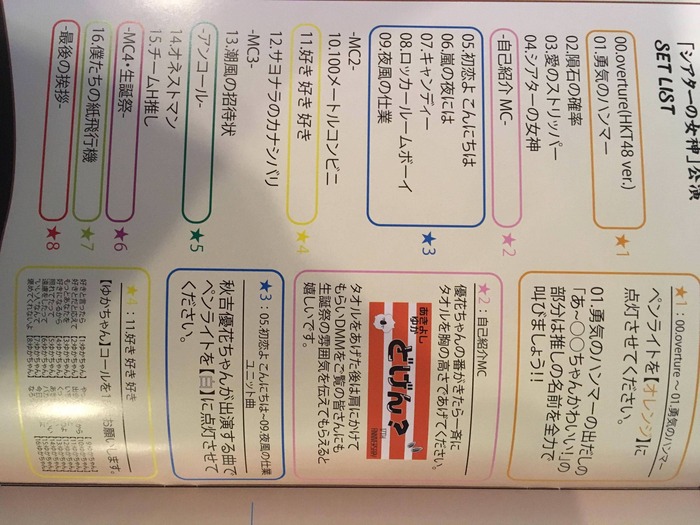 「シアターの女神」公演
SET LIST
00.overture(HKT48 ver.)
01.勇気のハンマー
★1
02.隕石の確率
03.愛のストリッパー
04.シアターの女神
-自己紹介 MC-
★2
05.初恋よ こんにちは
06.嵐の夜には
07.キャンディー
08.ロッカールームボーイ
09.夜風の仕業
★3
-MC2-
10.100メートルコンビニ
11.好き 好き 好き
★4
12.サヨナラのカナシバリ
-MC3-
13.潮風の招待状
-アンコール-
★5
14.オネストマン
15.チームH推し
-MC4・生誕祭-
★6
16.僕たちの紙飛行機
★7
-最後の挨拶-
★8
★1：00.overture～01.勇気のハンマー
ペンライトを【オレンジ】に
点灯させてください。
01.勇気のハンマーの出だしの
「あ～〇〇ちゃんかわいい！」の
部分は推しの名前を全力で
叫びましょう!!
★2：自己紹介MC
優花ちゃんの番がきたら一斉に
タオルを胸の高さであげてください。
あきよし
ゆか
どげん?
タオルをあげた後は肩にかけて
もらいDMMをご覧の皆さんにも
生誕祭の雰囲気を伝えてもらえると
嬉しいです。
★3：05.初恋よ こんにちは~09.夜風の仕業
ユニット曲
秋吉優花ちゃんが出演する曲で
ペンライトを【白】に点灯させて
ください。
★4：11.好き 好き 好き
【ゆかちゃん】コールを
お願いします。